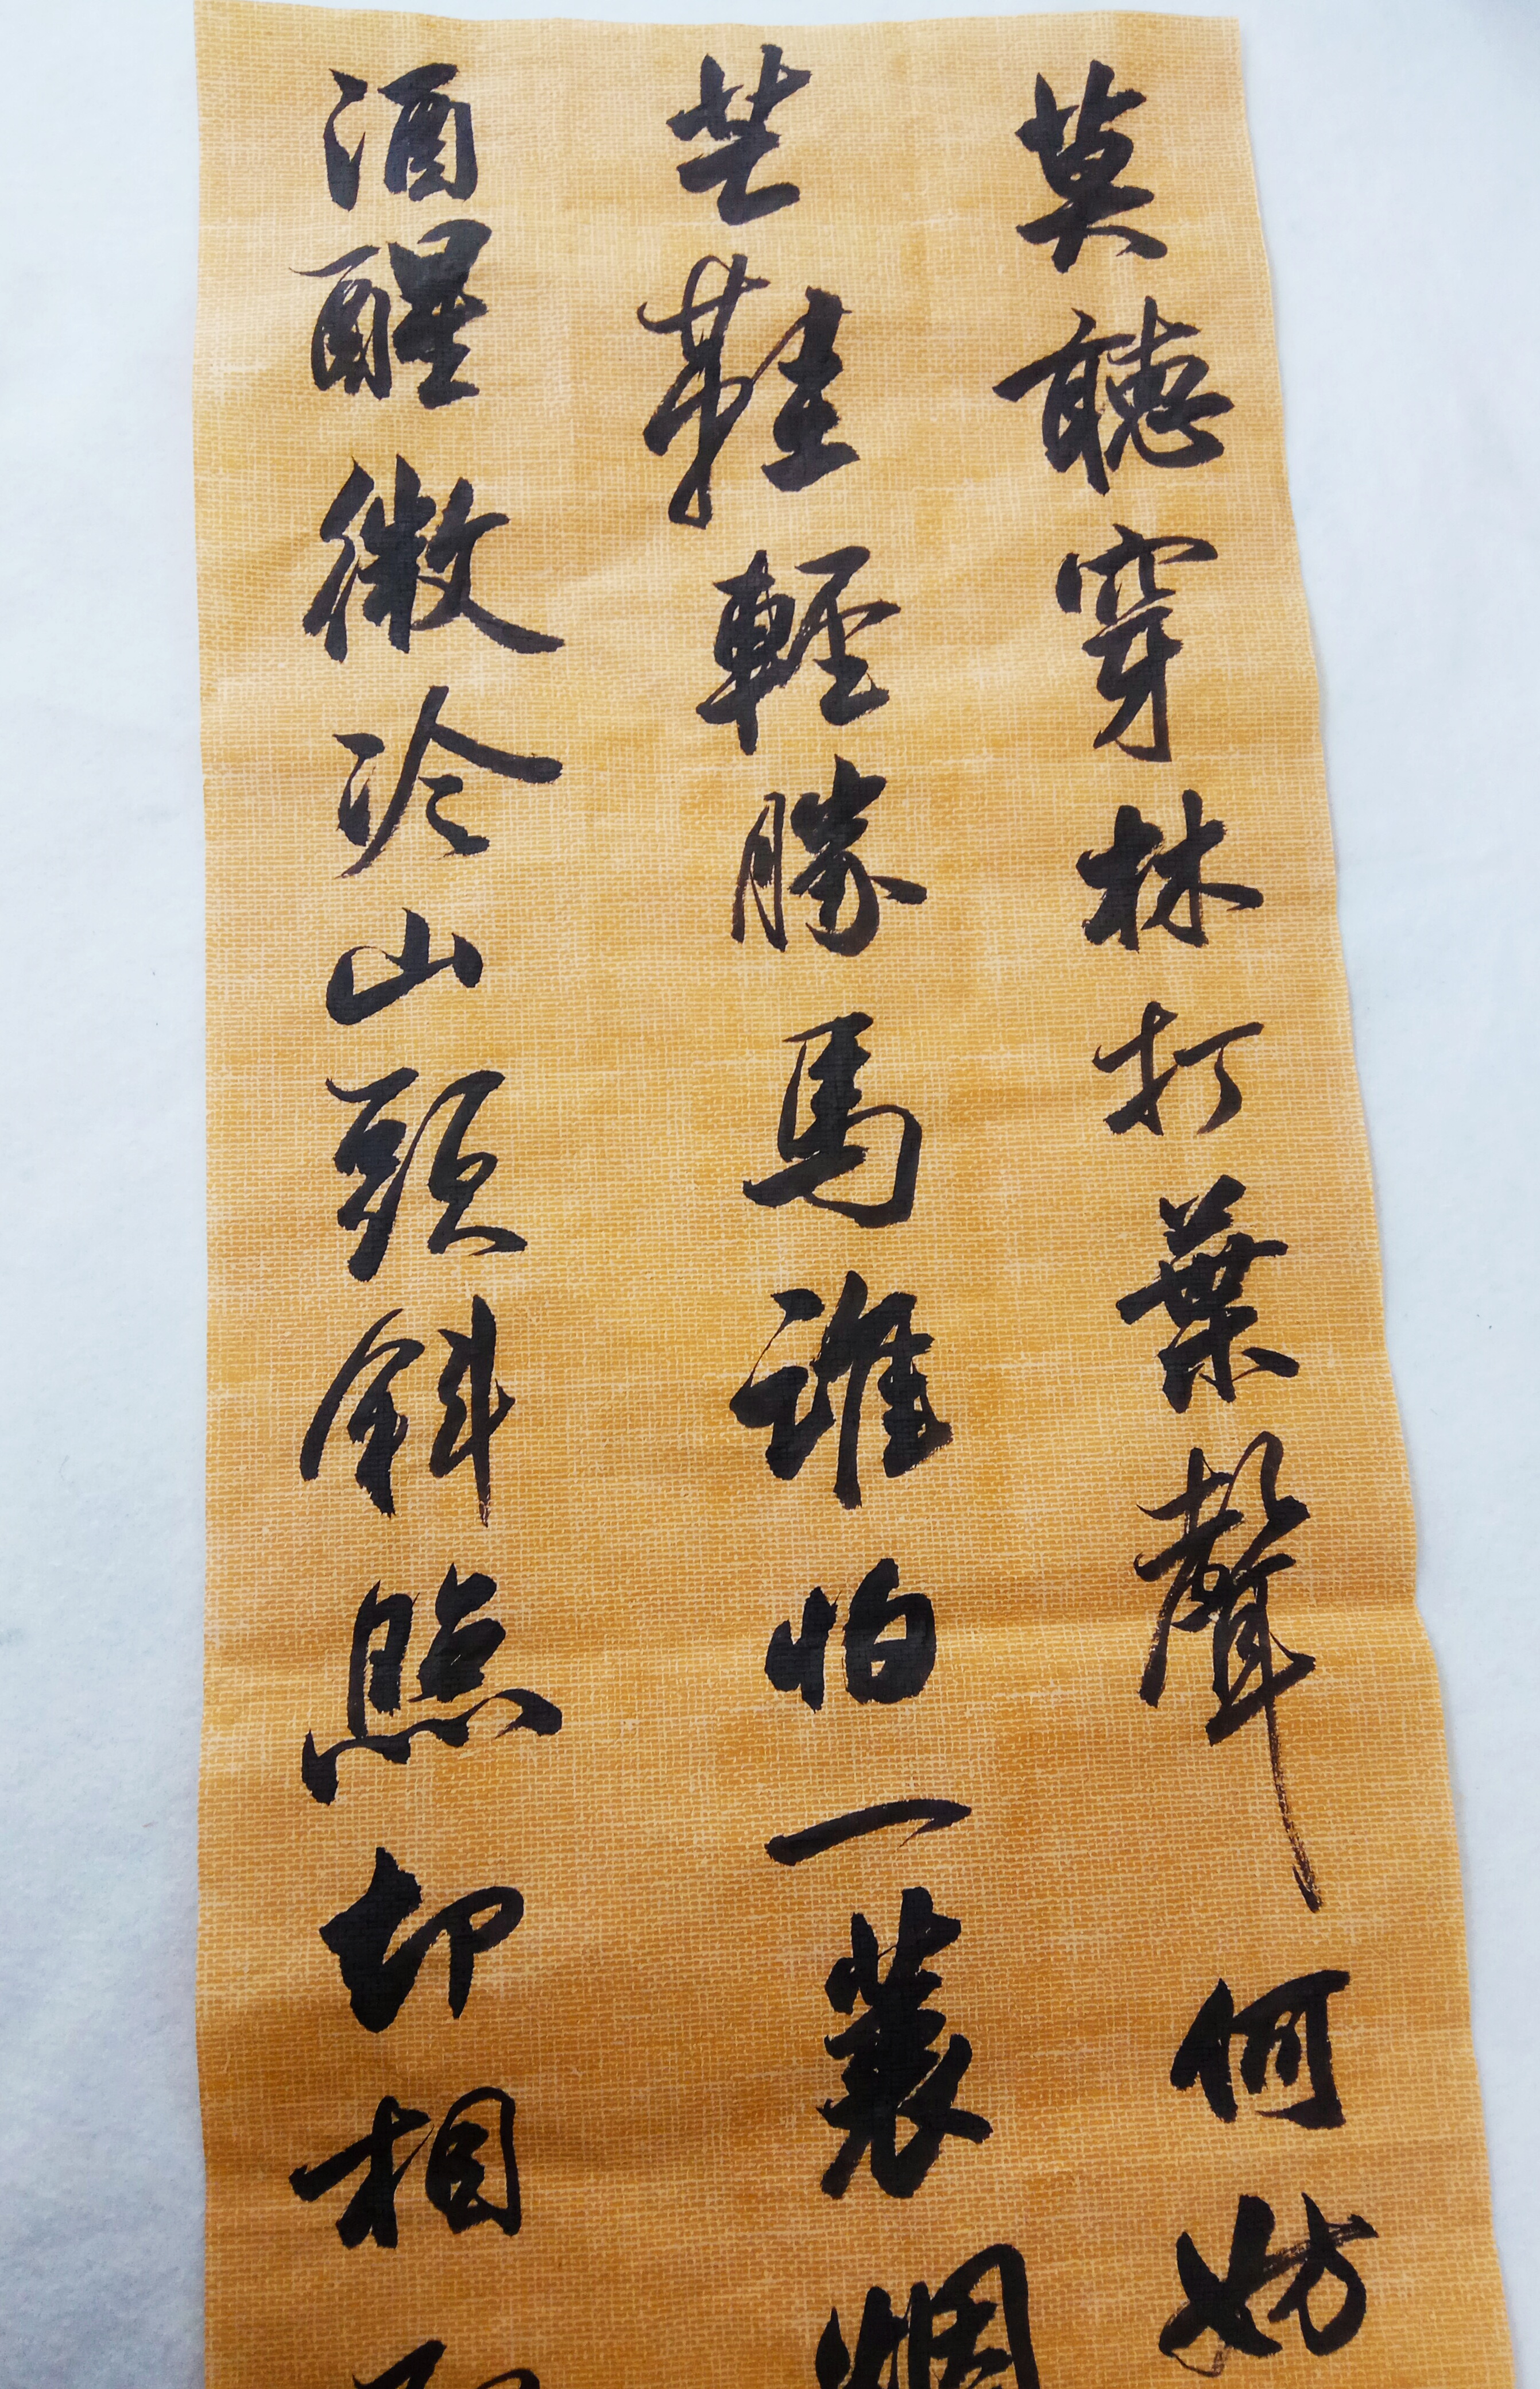 莫聽穿林打葉聲何妨
芒鞋輕勝馬誰怕一蓑烟
酒醒微冷山頭斜照却相